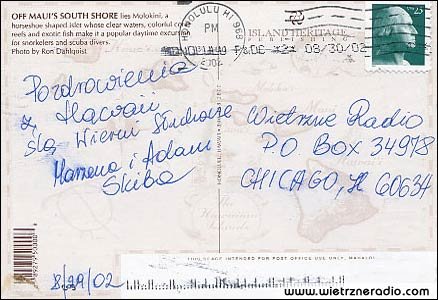 OFF MAUI'S SOUTH SHORE lies Molokini, a
horseshoe shaped islet whose clear waters, colorful
reefs and exotic fish make it a popular daytime excursion
for snorkelers and scuba divers.
Photo by Ron Dahlquist
HONOLULU HI 968
PM
2002
ISLAND HERITAGE
PUBLISHING
P&DC *2* 08/30/02
Pozdrowienia
z Hawaii
ślą Wierni Słuchacze
Marzena i Adam
Skiba
8/29/02
Wietrzne Radio
P.O BOX 34978
CHICAGO, IL 60634
THIS AREA INTENDED FOR POST OFFICE USE ONLY, MAHALO!
www.wietrzneradio.com